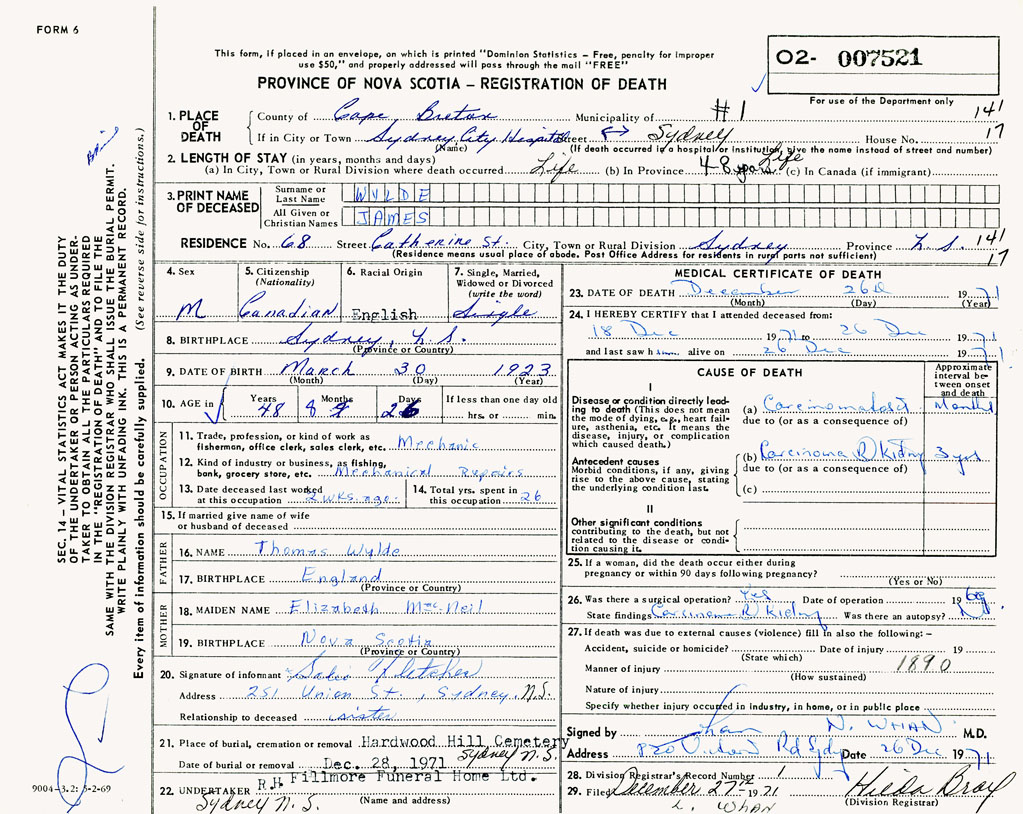 FORM 6
This form, if placed in an envelope, on which is printed "Dominion Statistics – Free, penalty for improper
use $50," and properly addressed will pass through the mail "FREE"
O2- 007521
PROVINCE OF NOVA SCOTIA – REGISTRATION OF DEATH
For use of the Department only
1. PLACE OF DEATH
County of Cape Breton Municipality of #1 141
If in City or Town Sydney City Hospital Street Sydney House No. 17
(Name) (If death occurred in a hospital or institution, give the name instead of street and number)
2. LENGTH OF STAY (in years, months and days)
(a) In City, Town or Rural Division where death occurred Life (b) In Province 48 years Life (c) In Canada (if immigrant)
3. PRINT NAME OF DECEASED
Surname or Last Name WYLDE
All Given or Christian Names JAMES
RESIDENCE No. 68 Street Catherine St. City, Town or Rural Division Sydney Province N.S. 141
(Residence means usual place of abode. Post Office Address for residents in rural parts not sufficient) 17
4. Sex M
5. Citizenship (Nationality) Canadian
6. Racial Origin English
7. Single, Married, Widowed or Divorced (write the word) Single
8. BIRTHPLACE Sydney, N.S.
(Province or Country)
9. DATE OF BIRTH March 30 1923
(Month) (Day) (Year)
10. AGE in Years 48 Months 8 Days 26 If less than one day old
hrs. or min.
OCCUPATION
11. Trade, profession, or kind of work as
fisherman, office clerk, sales clerk, etc. Mechanic
12. Kind of industry or business, as fishing,
bank, grocery store, etc. Mechanical Repairs
13. Date deceased last worked
at this occupation 2 wks ago
14. Total yrs. spent in
this occupation 26
15. If married give name of wife
or husband of deceased
FATHER
16. NAME Thomas Wylde
17. BIRTHPLACE England
(Province or Country)
MOTHER
18. MAIDEN NAME Elizabeth MacNeil
19. BIRTHPLACE Nova Scotia
(Province or Country)
20. Signature of informant Fletcher
Address 251 Union St., Sydney, N.S.
Relationship to deceased sister
21. Place of burial, cremation or removal Hardwood Hill Cemetery
Sydney N.S.
Date of burial or removal Dec. 28, 1971
22. UNDERTAKER R.H. Fillmore Funeral Home Ltd.
Sydney N.S. (Name and address)
MEDICAL CERTIFICATE OF DEATH
23. DATE OF DEATH December 26th 1971
(Month) (Day) (Year)
24. I HEREBY CERTIFY that I attended deceased from:
18 Dec 1971 to 26 Dec 1971
and last saw him alive on 26 Dec 1971
CAUSE OF DEATH
Approximate interval between onset and death
I
Disease or condition directly leading to death (This does not mean the mode of dying, e.g., heart failure, asthenia, etc. It means the disease, injury, or complication which caused death.)
(a) Carcinomatosis Months
due to (or as a consequence of)
Antecedent causes
Morbid conditions, if any, giving rise to the above cause, stating the underlying condition last.
(b) Carcinoma R Kidney 3 yrs
due to (or as a consequence of)
(c)
II
Other significant conditions
contributing to the death, but not related to the disease or condition causing it.
25. If a woman, did the death occur either during
pregnancy or within 90 days following pregnancy?
(Yes or No)
26. Was there a surgical operation? Yes Date of operation 1969
State findings Carcinoma R Kidney Was there an autopsy? No
27. If death was due to external causes (violence) fill in also the following: –
Accident, suicide or homicide? Date of injury 19
(State which)
Manner of injury 1890
(How sustained)
Nature of injury
Specify whether injury occurred in industry, in home, or in public place
Signed by Whan N. WHAN M.D.
Address Rd Sydney Date 26 Dec 1971
28. Division Registrar's Record Number 1
29. Filed December 27th 1971 Hilda Bray
L. WHAN (Division Registrar)
SEC. 14 – VITAL STATISTICS ACT MAKES IT THE DUTY
OF THE UNDERTAKER OR PERSON ACTING AS UNDER-
TAKER TO OBTAIN ALL THE PARTICULARS REQUIRED
IN THE "REGISTRATION OF DEATH" AND TO FILE THE
SAME WITH THE DIVISION REGISTRAR WHO SHALL ISSUE THE BURIAL PERMIT.
WRITE PLAINLY WITH UNFADING INK. THIS IS A PERMANENT RECORD.
Every item of information should be carefully supplied. (See reverse side for instructions.)
9004-3.2: 3-2-69